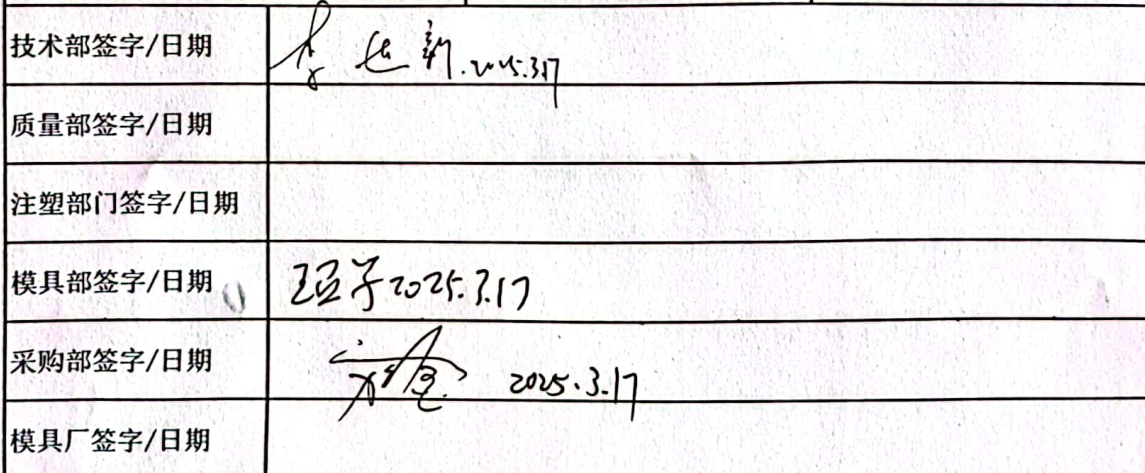 技术部签字/日期 2025.3.17
质量部签字/日期
注塑部门签字/日期
模具部签字/日期 2025.3.17
采购部签字/日期 2025.3.17
模具厂签字/日期